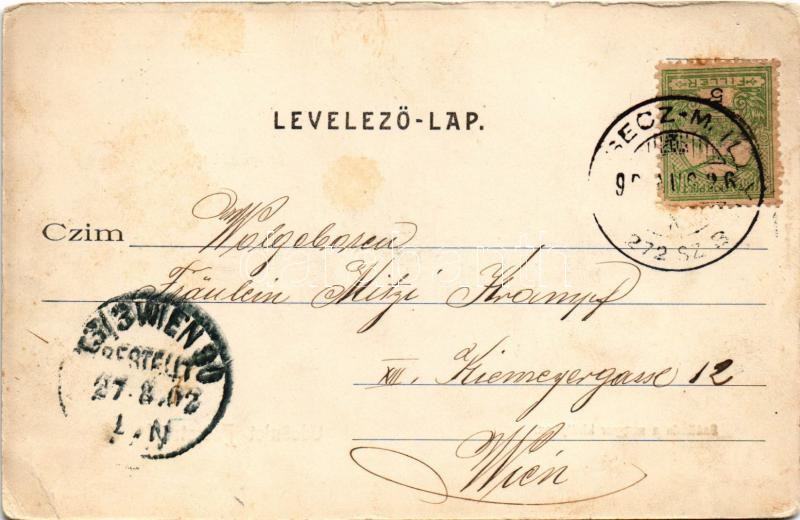 LEVELEZŐ-LAP.
FILLER
5
SECZ-M. IL
902 AUG 26
272 SZ
Czim Wolgeboren
Fräulein Mitzi Krampf
XIII. Kiemeyergasse 12
Wien
13/3 WIEN 90
BESTELLT
27.8.02